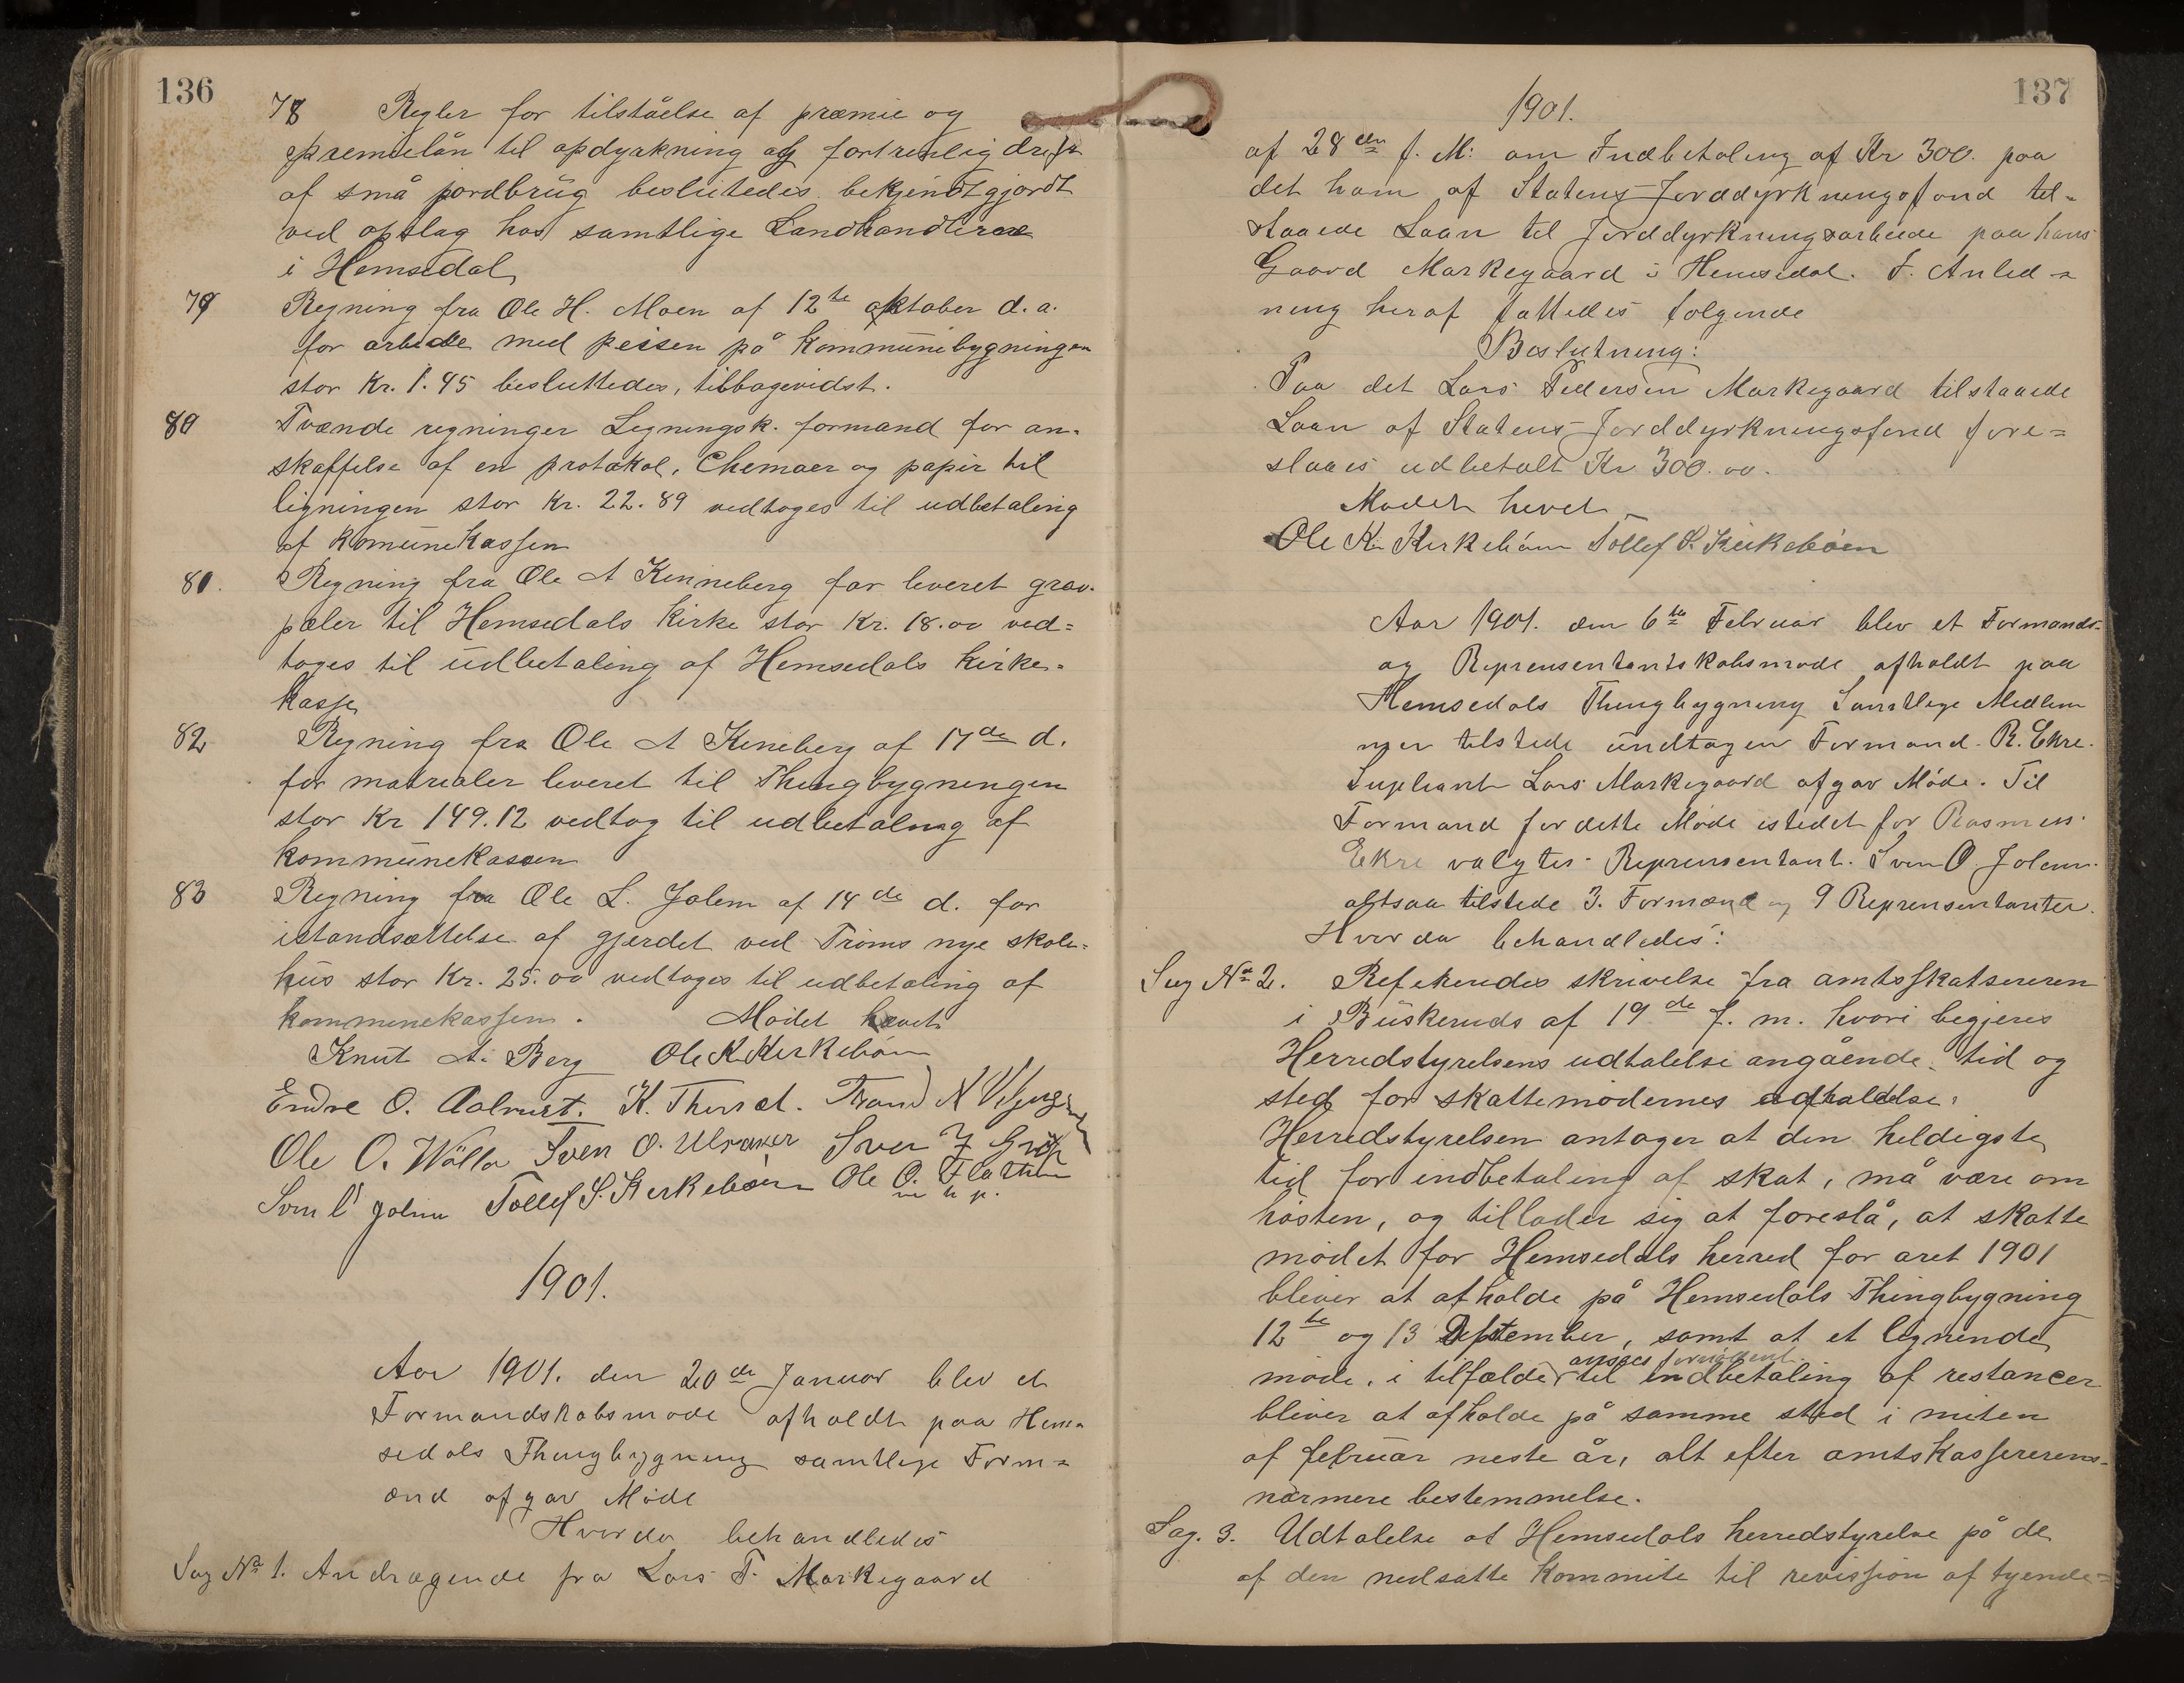 136
78 Regler for tilståelse af præmie og
premielån til opdyrkning og fortrinlig drift
af små jordbrug beslutedes bekjendtgjordt
ved opslag hos samtlige Landhandlerne
i Hemsedal
79 Regning fra Ole H. Moen af 12te oktober d. a.
for arbeide med peisen på kommunebygningen
stor Kr. 1.45 besluttedes, tilbagevidst.
80 Tvænde regninger Ligningsk. formand for an-
skaffelse af en protokol, Chemaer og papir til
ligningen stor Kr. 22.89 vedtoges til udbetaling
af Komunekassen
81. Regning fra Ole A Kinneberg for leveret grav-
pæler til Hemsedals Kirke stor Kr. 18.00 ved=
toges til udbetaling af Hemsedals kirke-
kasse
82 Regning fra Ole A Kineberg af 17de d.
for matrialer leveret til Thingbygningen
stor Kr 149.12 vedtog til udbetalnig af
kommunekassen
83 Regning fra Ole L. Jolem af 14de d. for
istandsættelse af gjærdet ved Trøms nye skole-
hus stor Kr. 25.00 vedtoges til udbetaling af
kommenekassen. Mødet hævet
Knut A. Berg Ole K Kirkebøen
Endre O. K. Trand N
Ole O. Wølla Sven O. Ulsaker Iver
Sven O Jolem Tollef S. Kirkebøen Ole O. Flaten
m h p.
1901.
Aar 1901. den 20de Januar blev et
Formandskabsmøde afholdt paa Hem-
sedals Thingbygning samtlige Form=
ænd afgav Møde
Hvorda behandledes
Sag No 1. Andragende fra Lars T. Markegaard
137
1901.
af 28den f. M: om Indbetaling af Kr 300. paa
det ham af Statens Jorddyrkningsfond til-
staaede Laan til Jorddyrkningsarbeide paa hans
Gaard Markegaard i Hemsedal. I. Anled-
ning heraf fattedes følgende
Beslutning:
Paa det Lars Pedersen Markegaard tilstaaede
Laan af Statens Jorddyrkningsfond fore=
slaaes udbetalt Kr 300.00.
Mødet hevet
Ole K. Kirkebøen Tollef S. Kirkebøen
Aar 1901. den 6te Februar blev et Formands-
og Reprensentantskabsmøde afholdt paa
Hemsedals Thingbygning Samtlige Medlem
mer tilstede undtagen Formand. R. Ekre.
Supleant Lars Markegaard afgav Møde. Til
Formand for dette Møde istedet for Rasmus
Ekre valgtes Reprensentant. Sven O. Jolem.
altsaa tilstede 3. Formænd og 9 Reprensentanter.
Hvorda behandledes:
Sag No 2. Refererdes skrivelse fra amtsskatsereren
i Buskeruds af 19de f. m. hvori begjeres
Herredstyrelsens udtalelse angående tid og
sted for skattemødernes adfholdelse.
Herredstyrelsen antager at den heldigste
tid for indbetaling af skat, må være om
høsten, og tillader sig at foreslå, at skatte
mødet for Hemsedals herred for aret 1901
bliver at afholde på Hemsedals Thingbygning
12te og 13 September, samt at et lignende
ansees fornødent
møde, i tilfælde til indbetaling af restancer
bliver at afholde på samme sted i miten
af februar neste år, alt efter amtskassererens
nærmere bestemmelse.
Sag. 3. Udtalelse at Hemsedals herredstyrelse på de
af den nedsatte Kommite til revission af tyende=